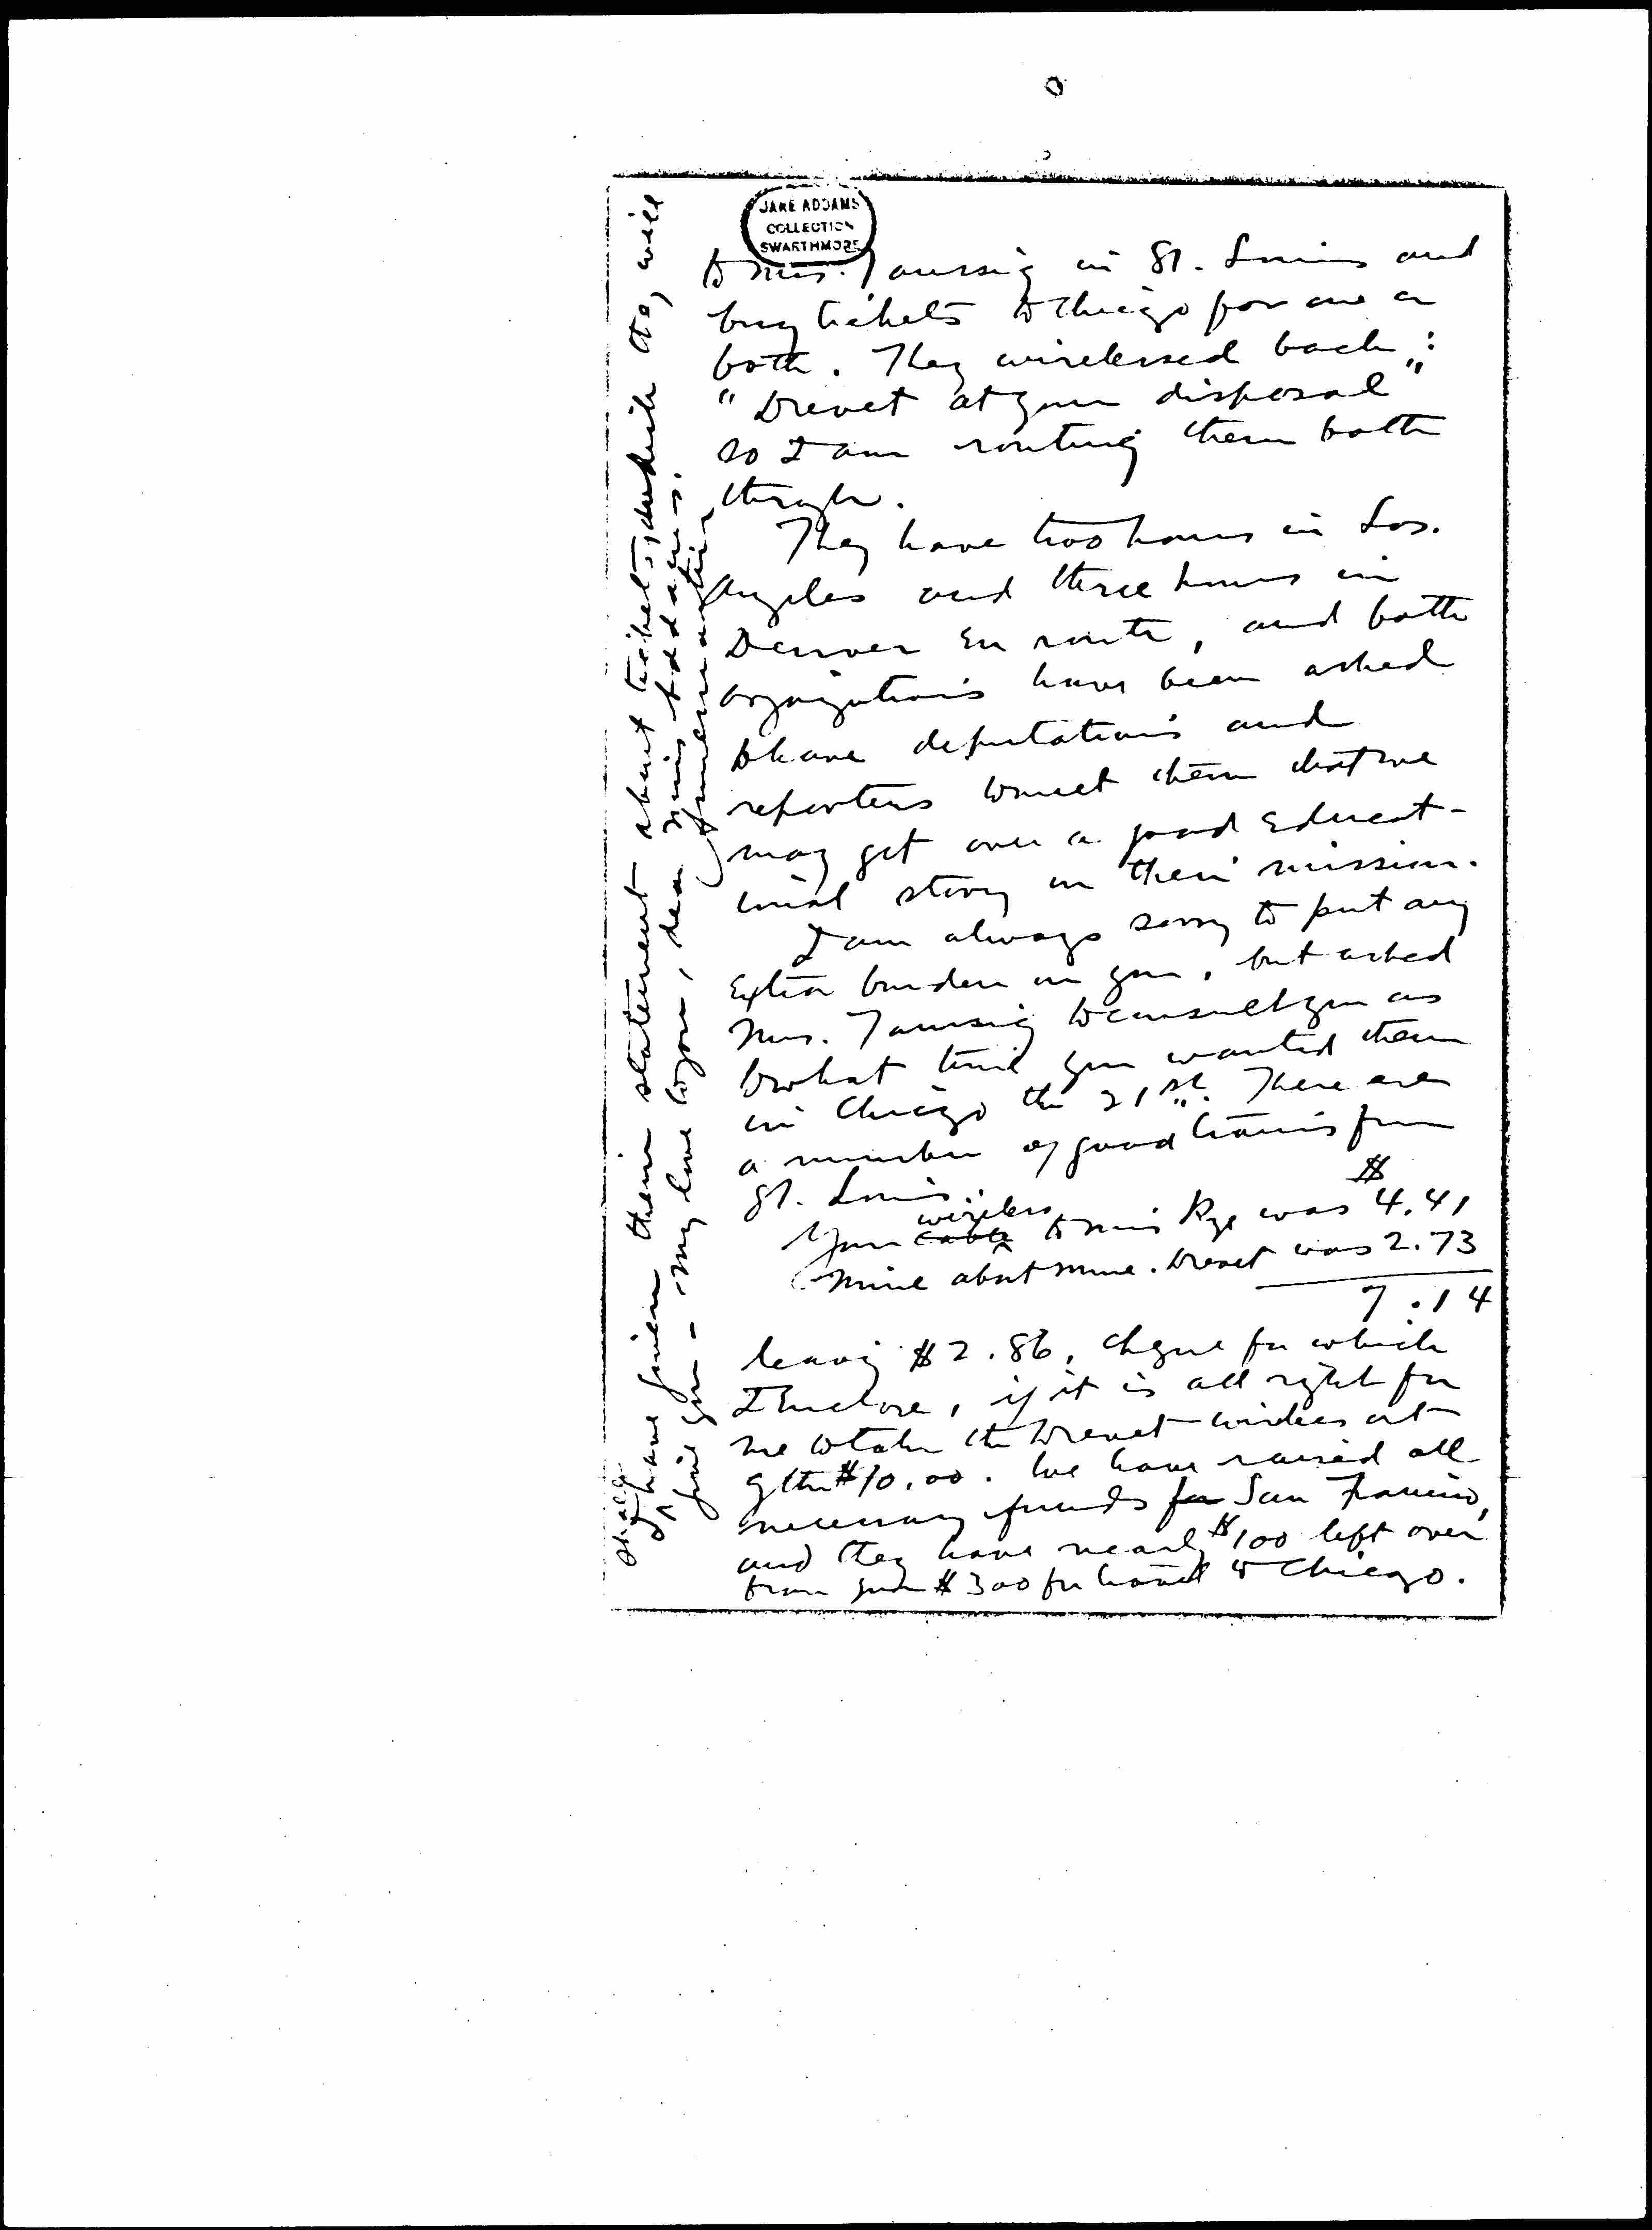 JANE ADDAMS
COLLECTION
SWARTHMORE
to Mrs. Taussig in St. Louis and
buy tickets to Chicago for one or
both. They wirelessed back:
"Drevet at your disposal"
so I am routing them both
through.
They have two hours in Los.
Angeles and three hours in
Denver en route, and both
organizations have been asked
to have deputations and
reporters to meet them that we
may get over a good educat-
ional story on their mission.
I am always sorry to put any
extra burden on you, but asked
Mrs. Taussig to consult you as
to what time you wanted them
in Chicago the 21st. There are
a number of good trains from
St. Louis.
wireless $
Your cable to Miss Rye was 4.41
Mine about Mme. Drevet was 2.73
7.14
leaving $2.86, cheque for which
I enclose, if it is all right for
me to take the Drevet wireless out
of the $10.00. We have raised all
necessary funds for San Francisco,
and they have nearly $100 left over
from your $300 for travel to Chicago.
shall
I have given them statement about tickets, which they will
give you - My love to you, dear Miss Addams.